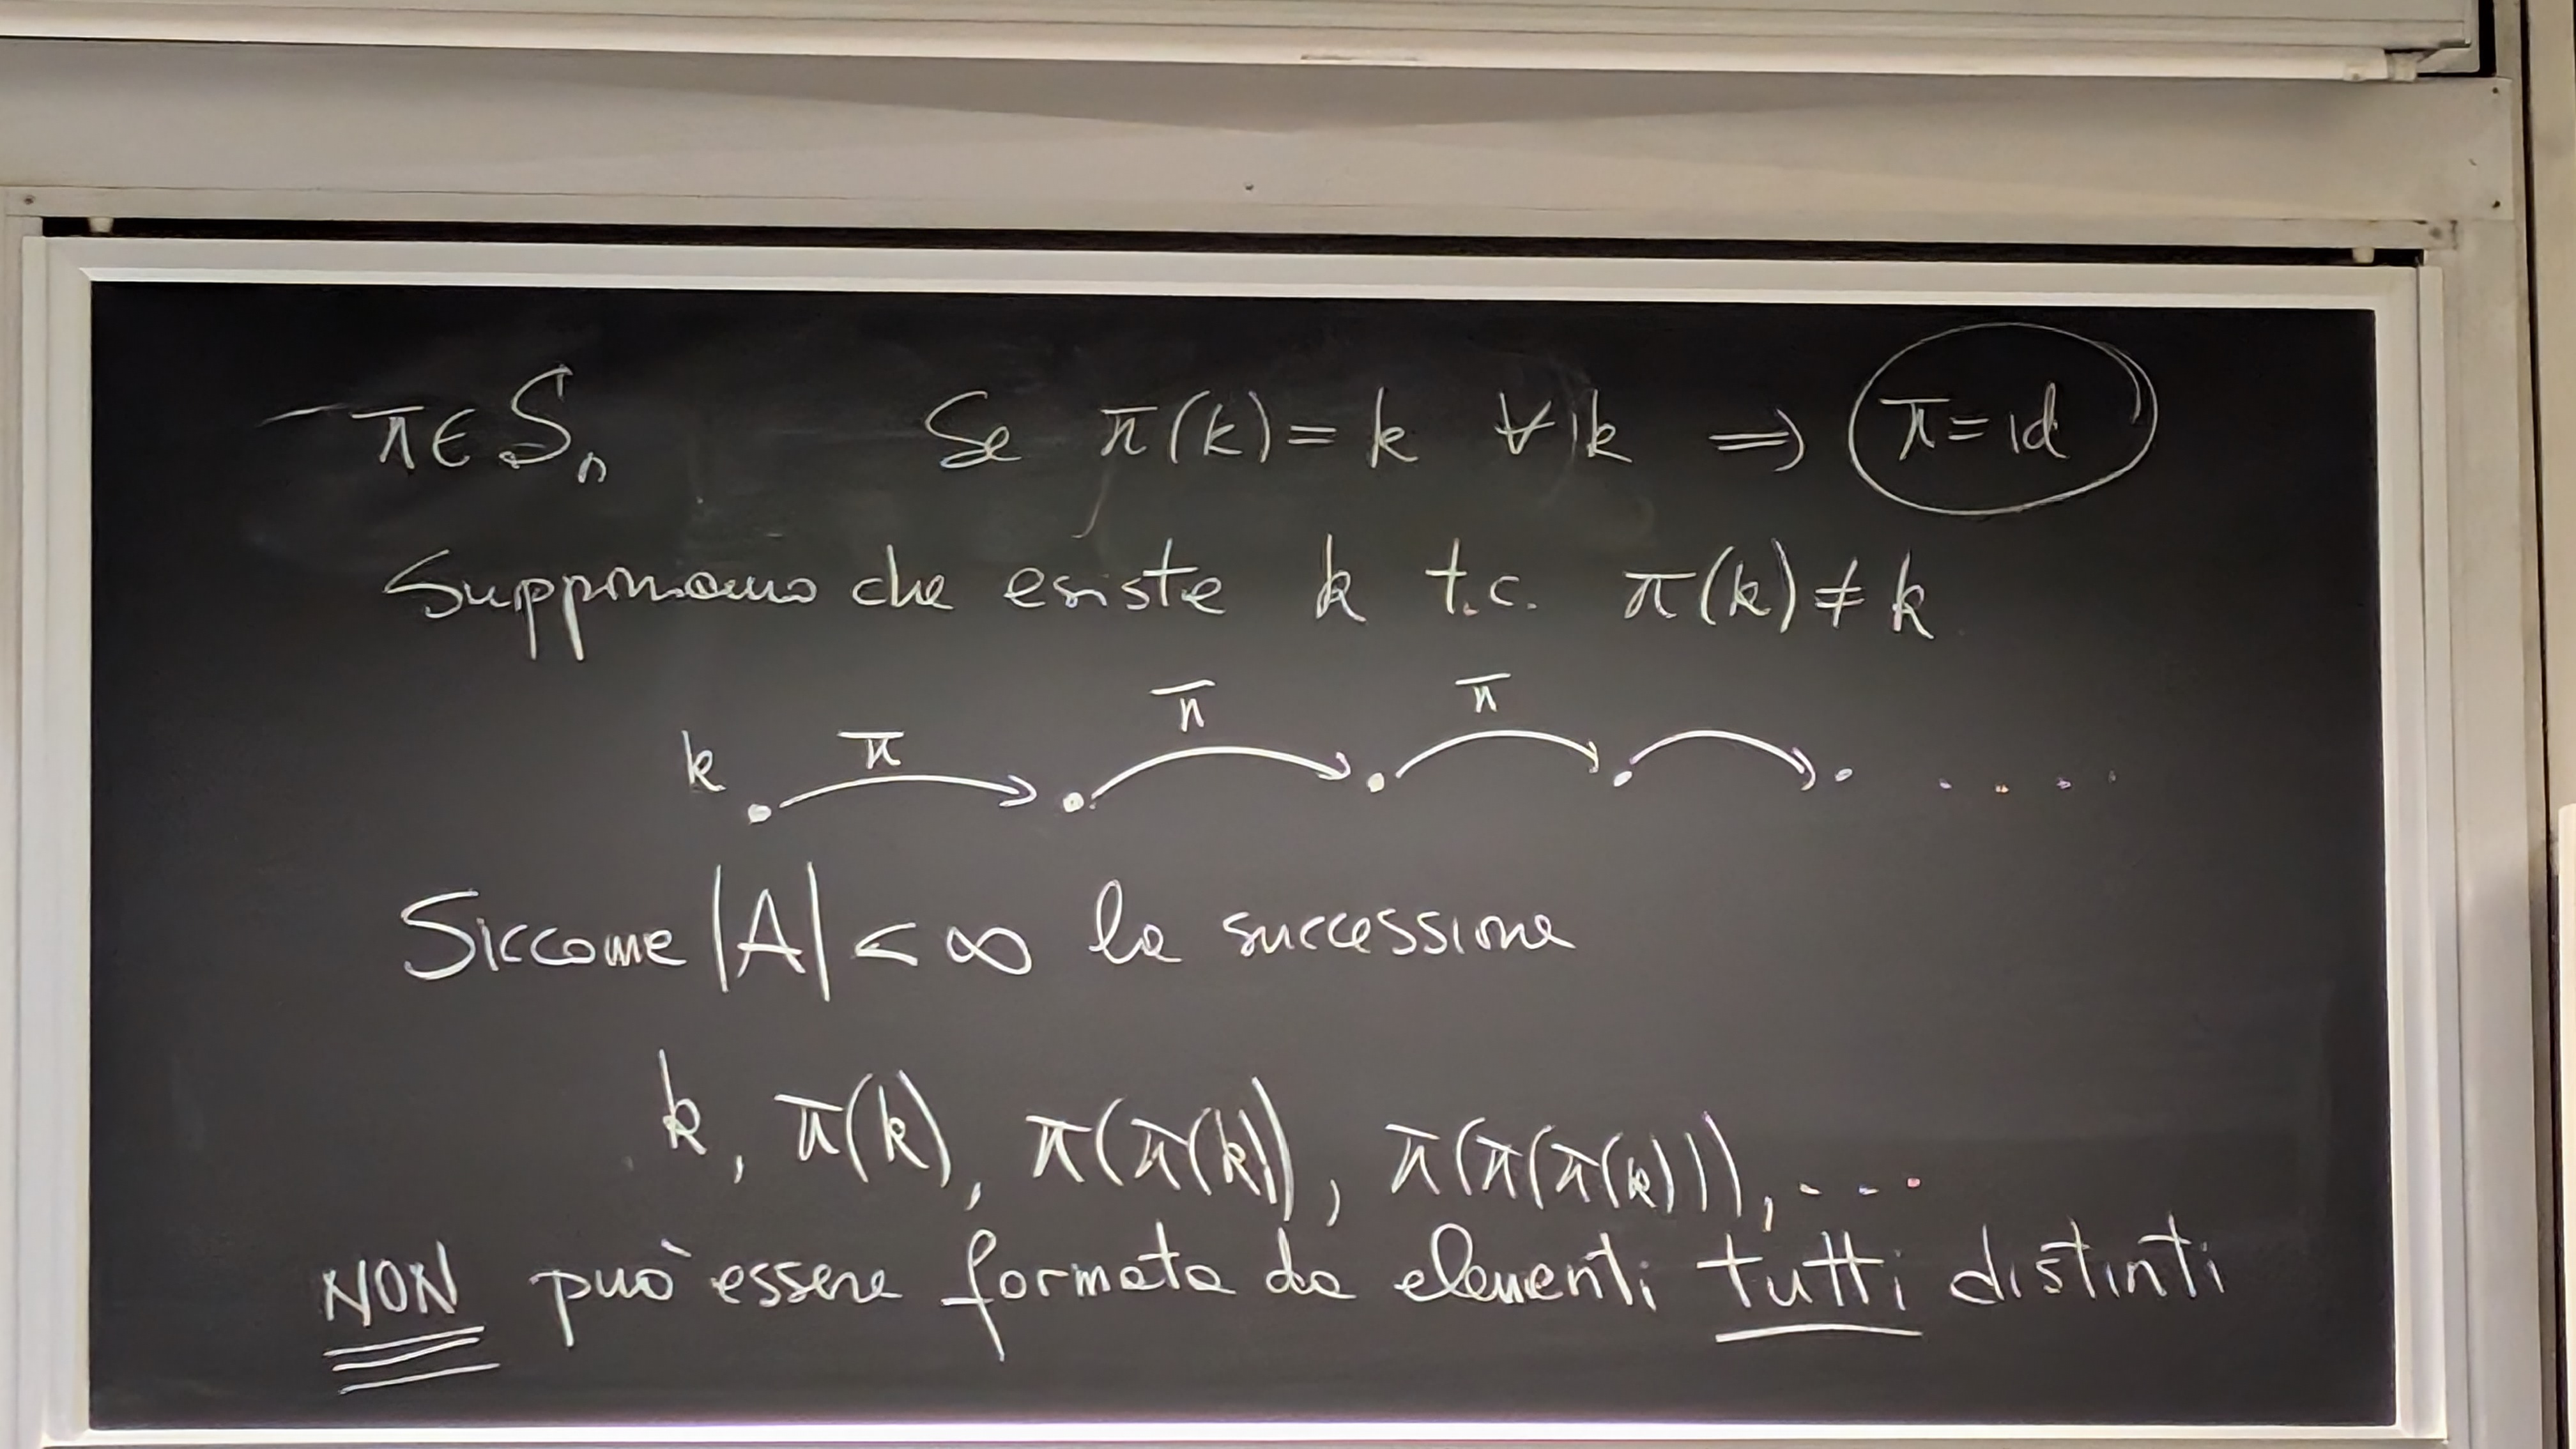 π ∈ Sₙ Se π(k) = k ∀ k ⇒ π = id
Supponiamo che esiste k t.c. π(k) ≠ k
π π
k π
Siccome |A| < ∞ la successione
k, π(k), π(π(k)), π(π(π(k))), ...
NON può essere formata da elementi tutti distinti